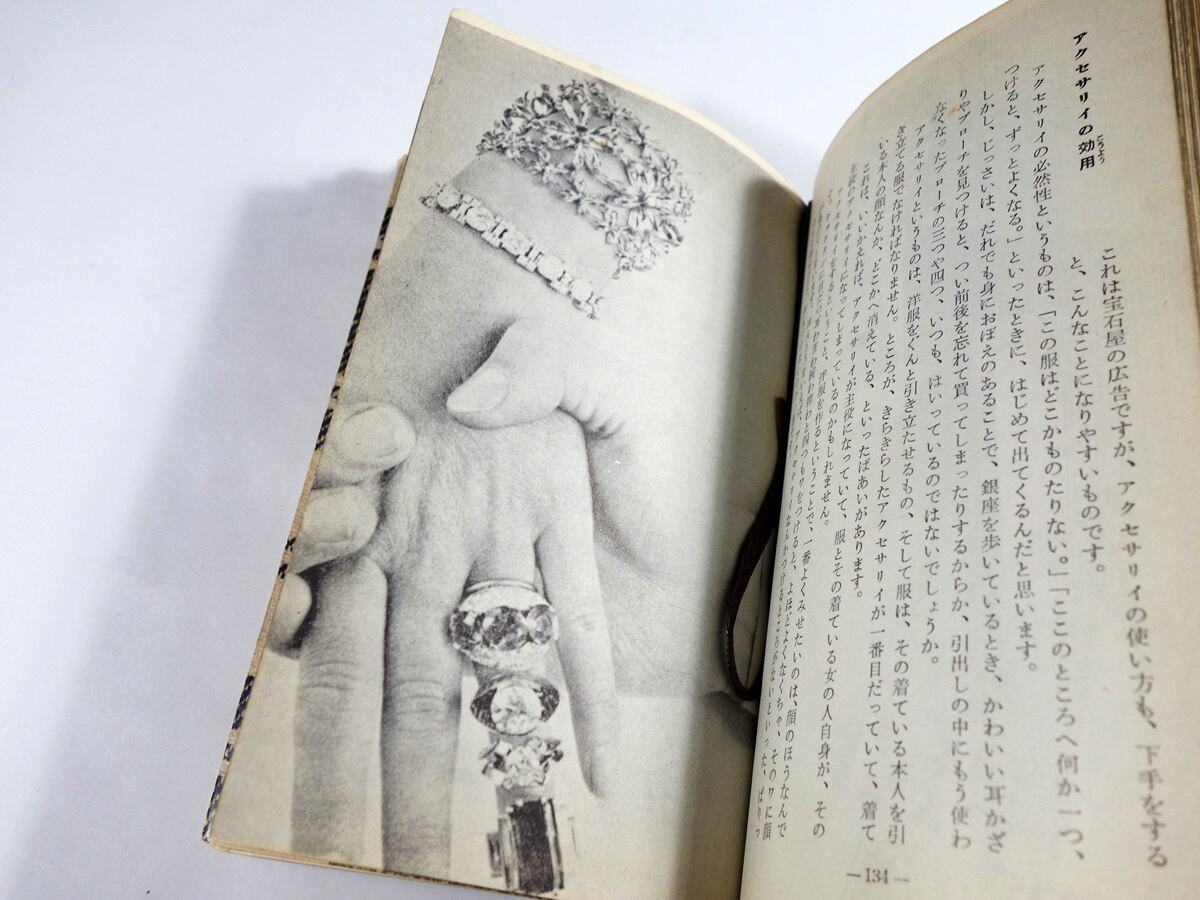 アクセサリイの効用
こうよう
これは宝石屋の広告ですが、アクセサリイの使い方も、下手をする
と、こんなことになりやすいものです。
アクセサリイの必然性というものは、「この服はどこかものたりない。」「ここのところへ何か一つ、
つけると、ずっとよくなる。」といったときに、はじめて出てくるんだと思います。
しかし、じっさいは、だれでも身におぼえのあることで、銀座を歩いているとき、かわいい耳かざ
りやブローチを見つけると、つい前後を忘れて買ってしまったりするからか、引出しの中にもう使わ
なくなったブローチの三つや四つ、いつも、はいっているのではないでしょうか。
アクセサリイというものは、洋服をぐんと引き立たせるもの、そして服は、その着ている本人を引
き立てる服でなければなりません。ところが、きらきらしたアクセサリイが一番目だっていて、着て
いる本人の顔なんか、どこかへ消えている、といったばあいがあります。
これは、いいかえれば、アクセサリイが主役になっていて、服とその着ている女の人自身が、その
主役のアクセサリイになってしまっているのかもしれません。
アクセサリイをするということ、洋服を作るということで、一番よくみせたいのは、顔のほうなんで
—134—